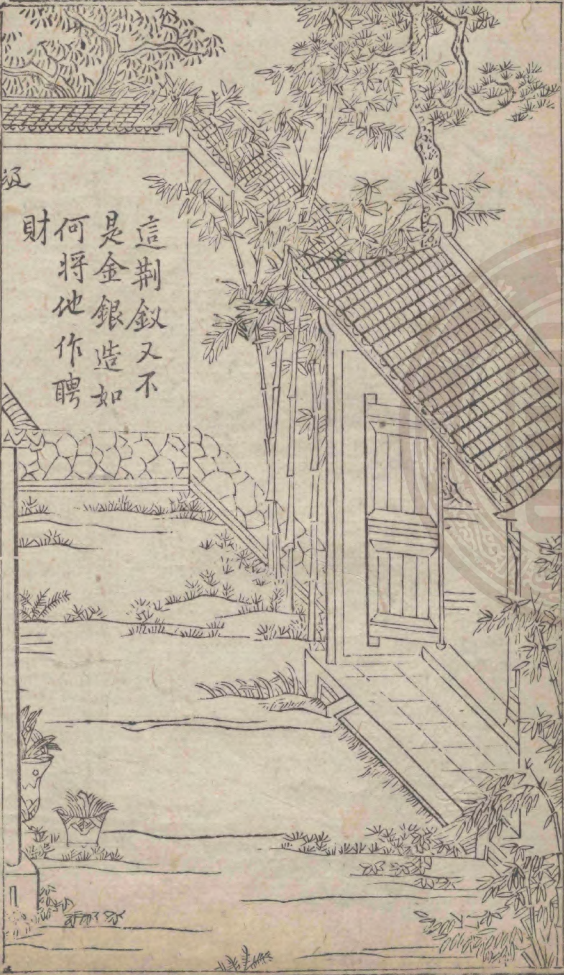 這荆釵又不
是金銀造如
何將他作聘
財